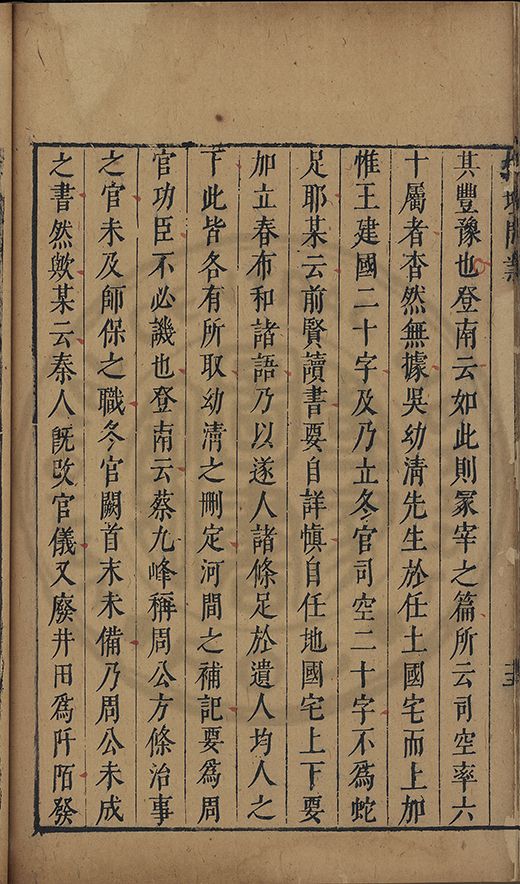 其豐豫也登南云如此則冢宰之篇所云司空率六
十屬者杳然無據吳幼清先生於任土國宅而上加
惟王建國二十字及乃立冬官司空二十字不為蛇
足耶某云前賢讀書要自詳慎自任地國宅上下要
加立春布和諸語乃以遂人諸條足於遺人均人之
下此皆各有所取幼清之刪定河間之補記要為周
官功臣不必譏也登南云蔡九峰稱周公方條治事
之官未及師保之職冬官闕首末未備乃周公未成
之書然歟某云秦人既改官儀又廢井田為阡陌發